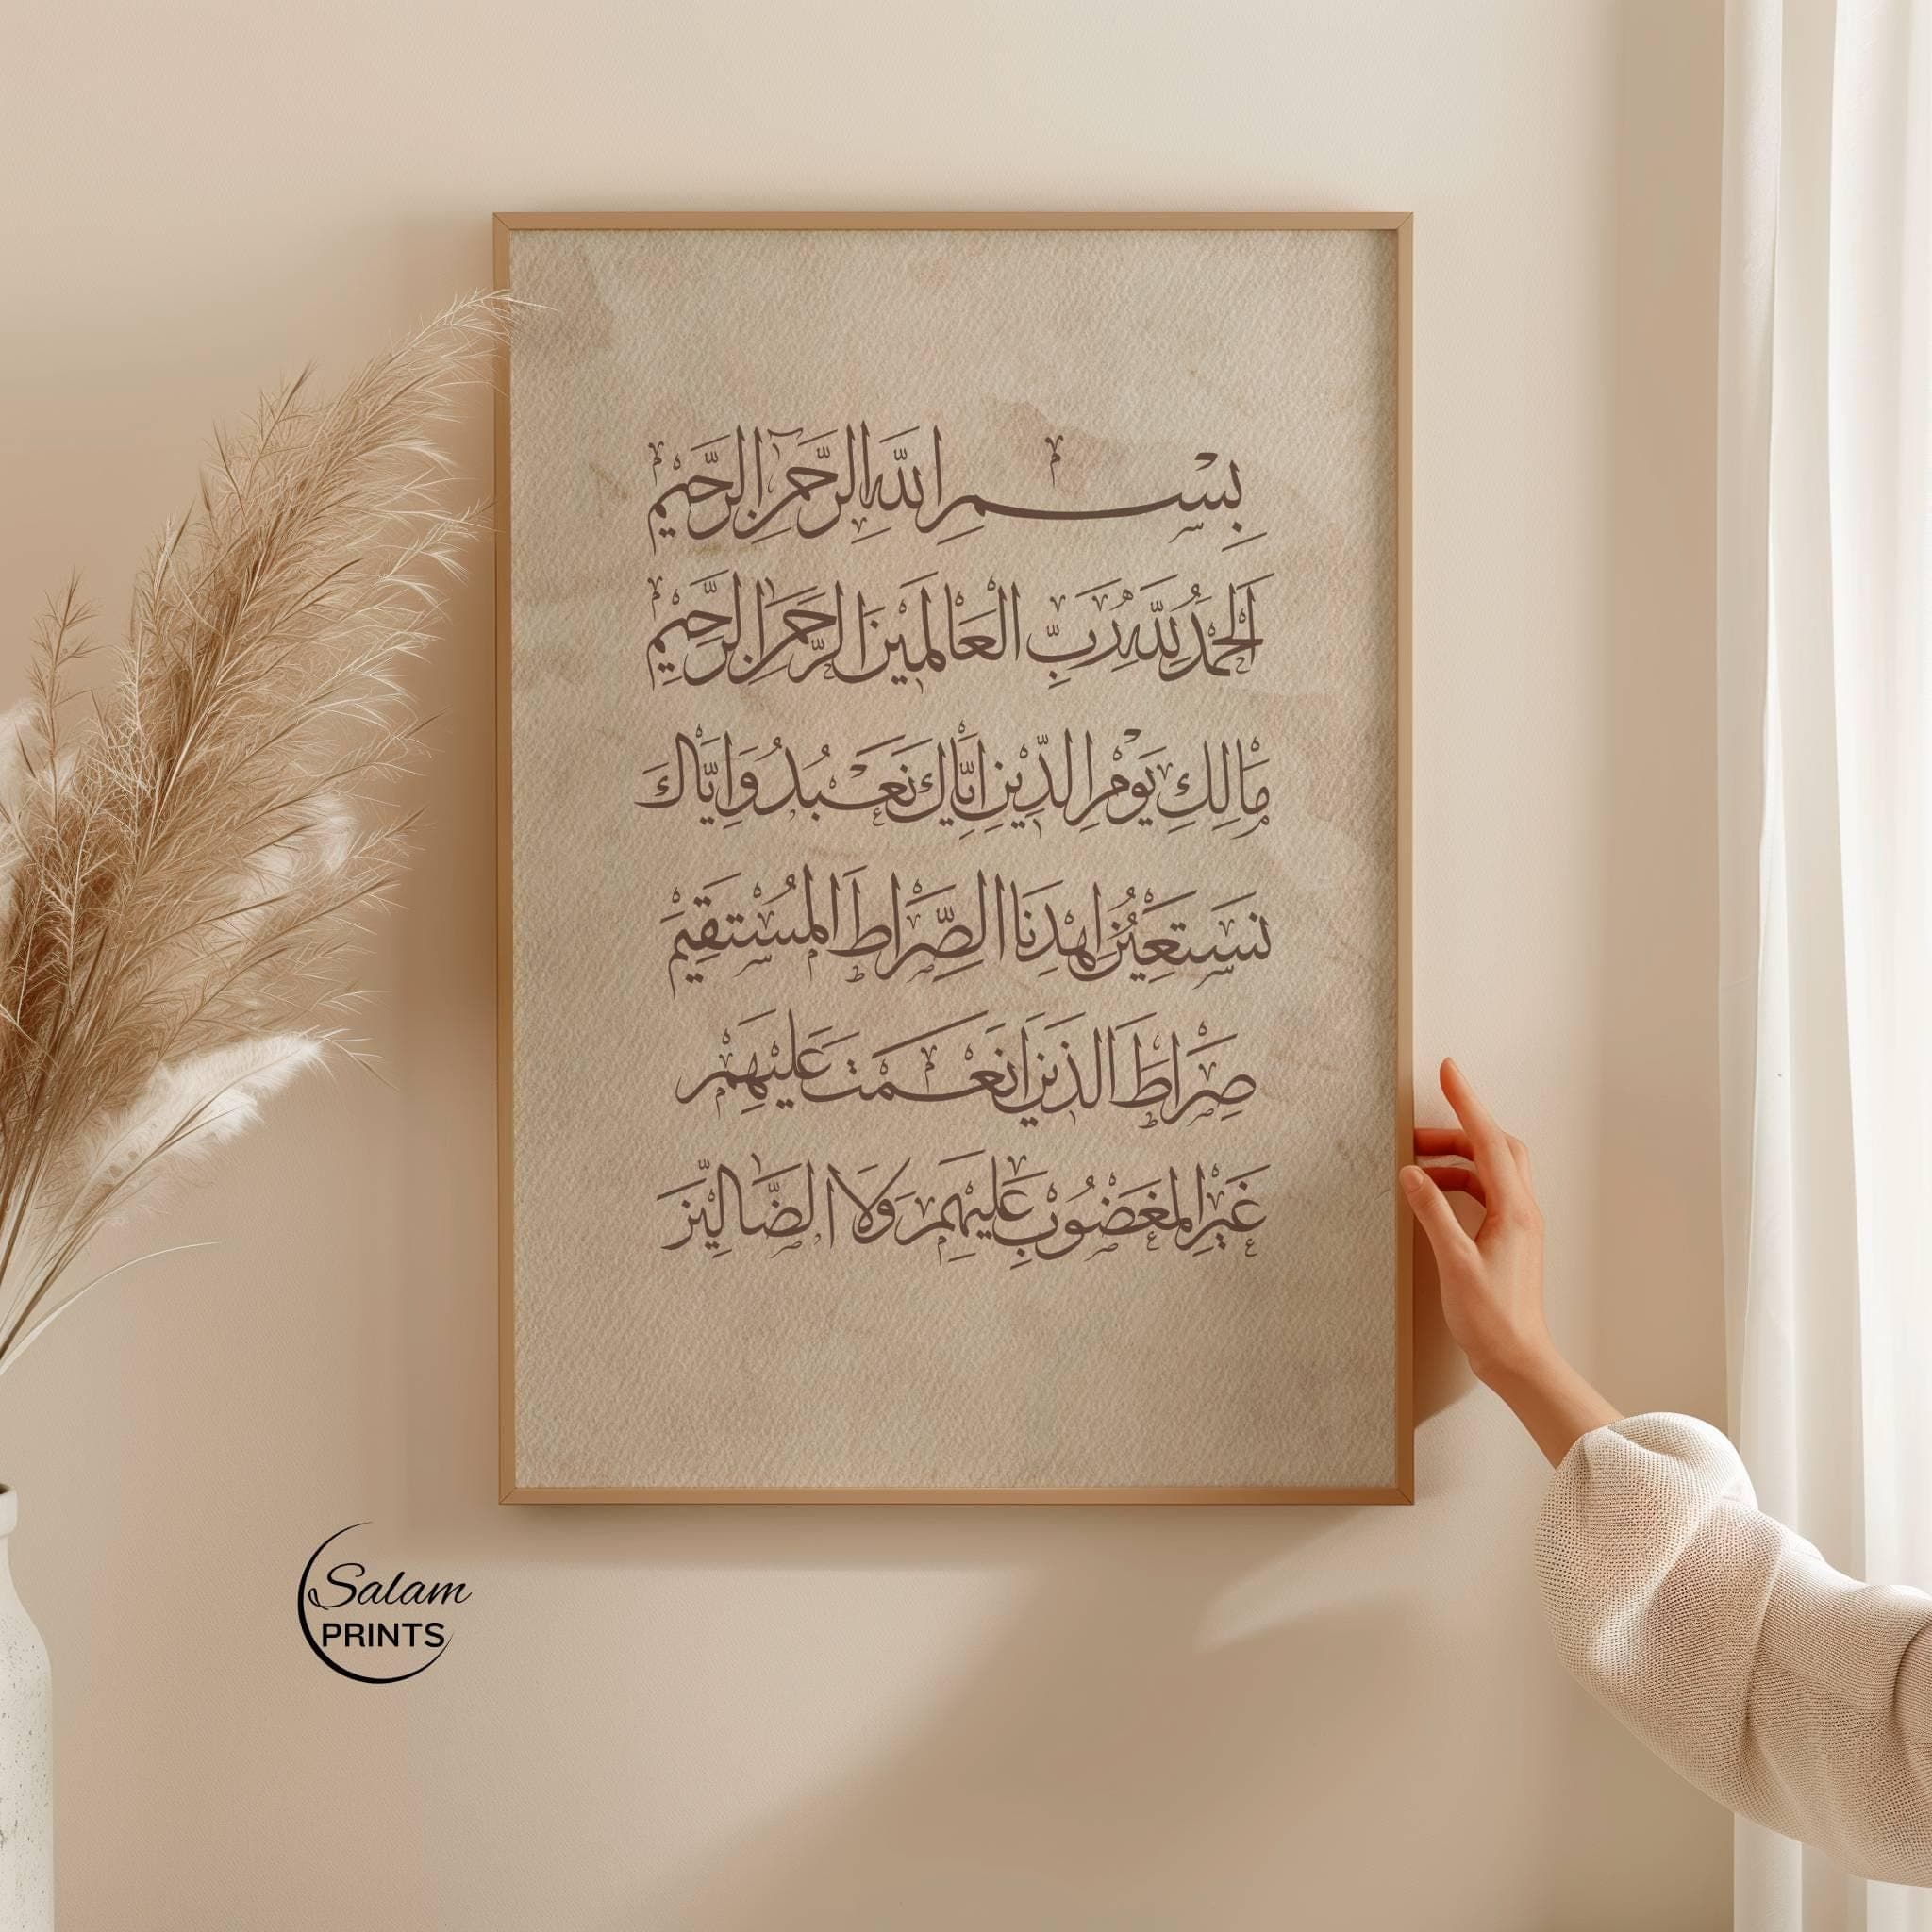 بِسْمِ اللَّهِ الرَّحْمَٰنِ الرَّحِيمِ
اَلْحَمْدُ لِلَّهِ رَبِّ الْعَالَمِينَ الرَّحْمَٰنِ الرَّحِيمِ
مَالِكِ يَوْمِ الدِّينِ اِيَّاكَ نَعْبُدُ وَاِيَّاكَ
نَسْتَعِينُ اِهْدِنَا الصِّرَاطَ الْمُسْتَقِيمَ
صِرَاطَ الَّذِينَ اَنْعَمْتَ عَلَيْهِمْ
غَيْرِ الْمَغْضُوبِ عَلَيْهِمْ وَلَا الضَّالِّينَ
Salam
PRINTS